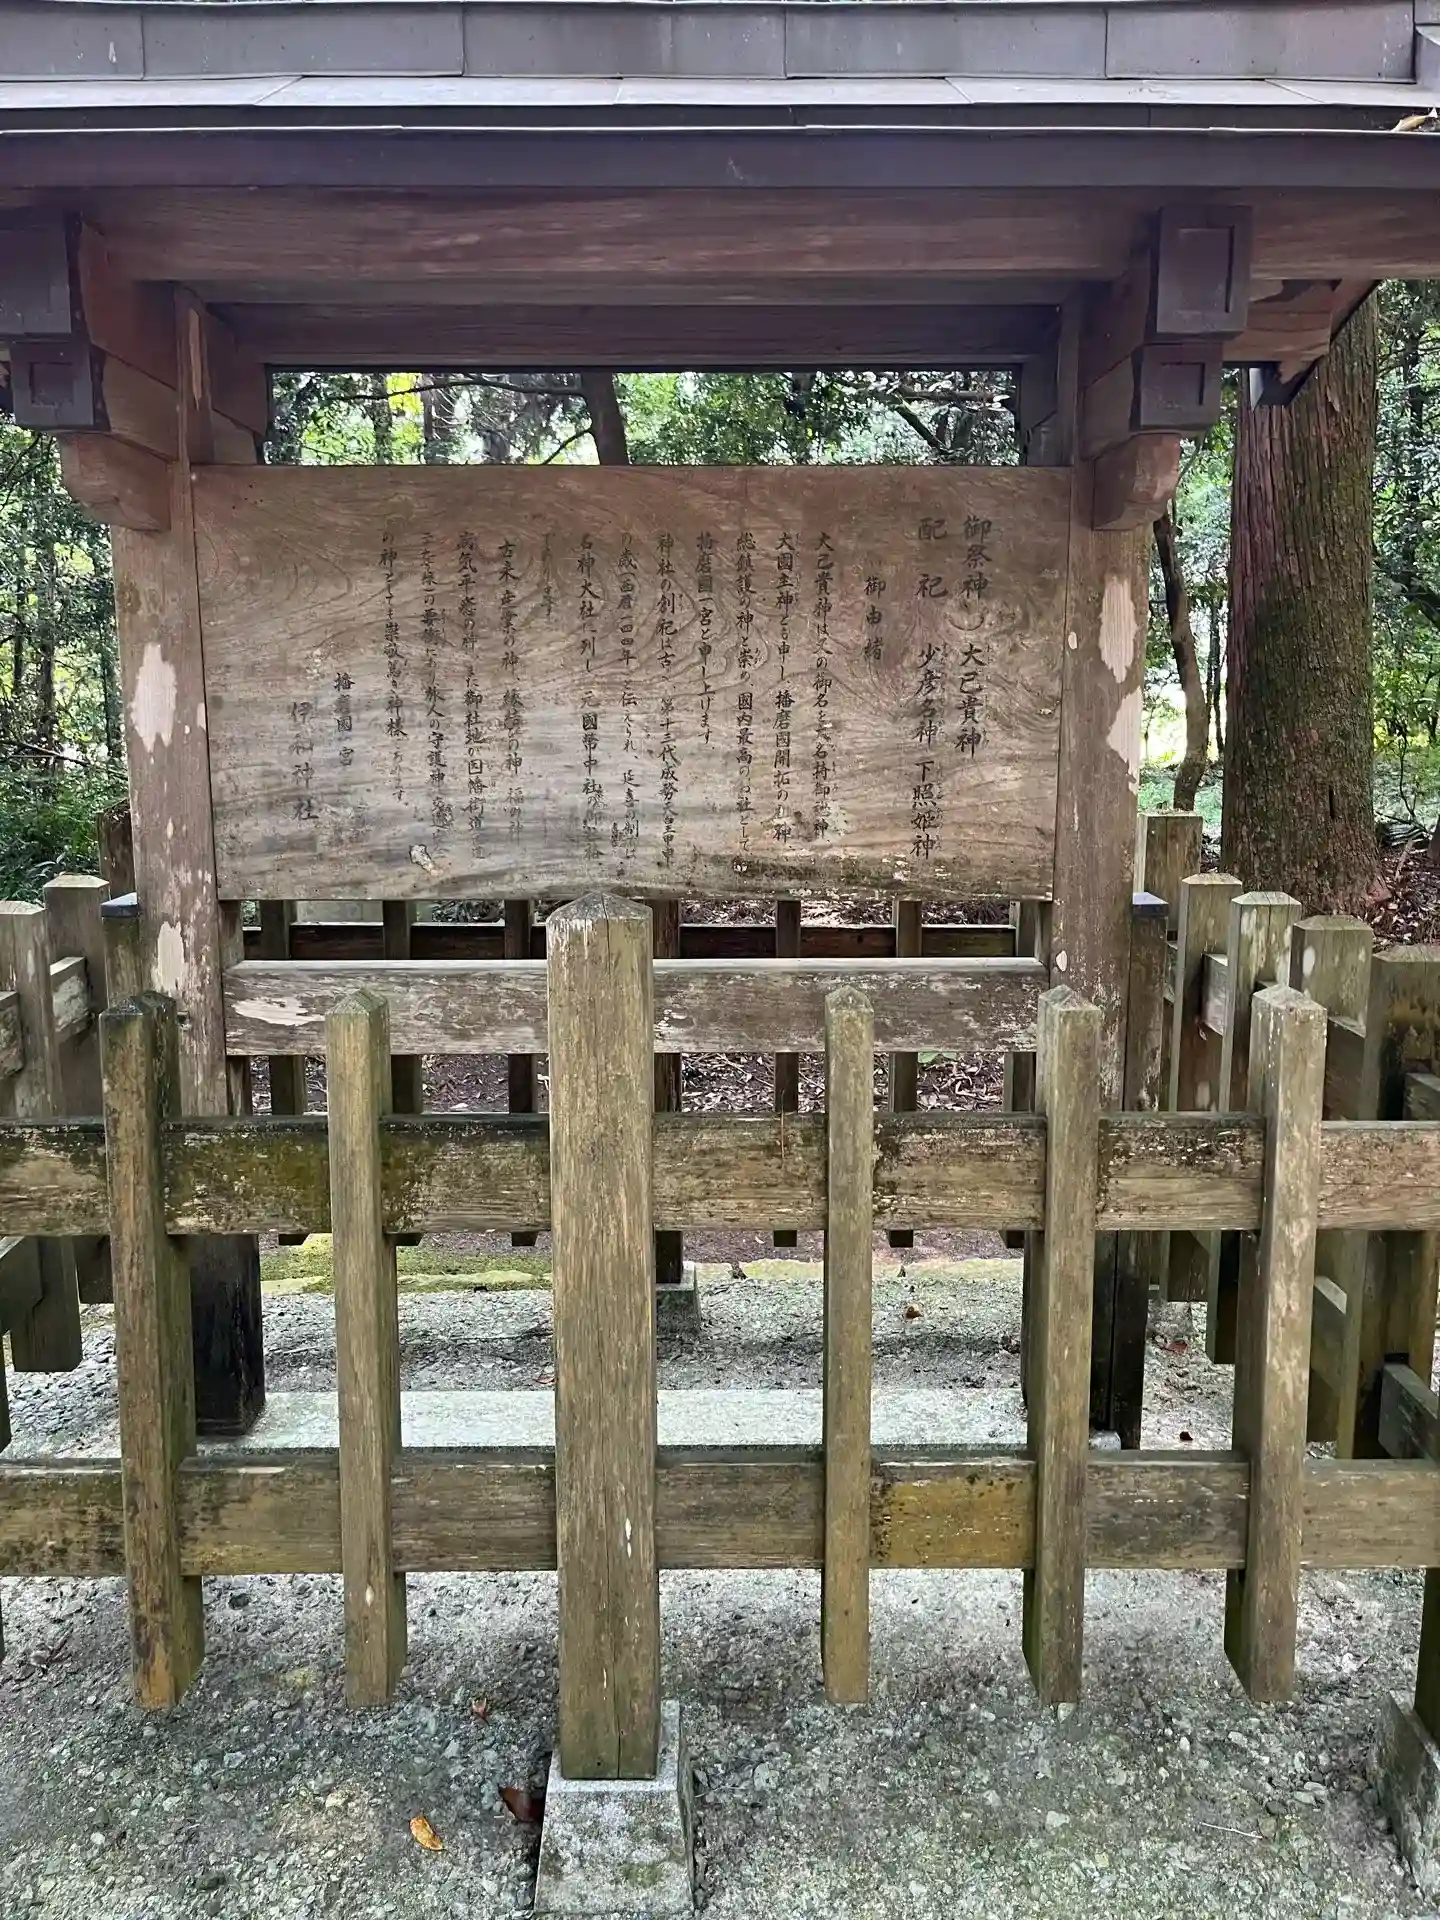 御祭神 大己貴神
配祀 少彦名神 下照姫神
御由緒
大己貴神は又の御名を大名持御魂神、
大國主神とも申し、播磨国開拓の神、
総鎮護の神と崇め、國内最高のお社として
播磨國一宮と申し上げます。
神社の創祀は古く、第十三代成務天皇甲申
の歳(西暦一四四年)と伝えられ、延喜の制には
名神大社に列し、元國幣中社の御社格
であります。
古来、産業の神、縁結の神、福の神
病気平癒の神、また御社地が因幡街道
の要衝にあり旅人の守護神、交通
の神としても崇敬篤き神様であります。
播磨國一宮
伊和神社